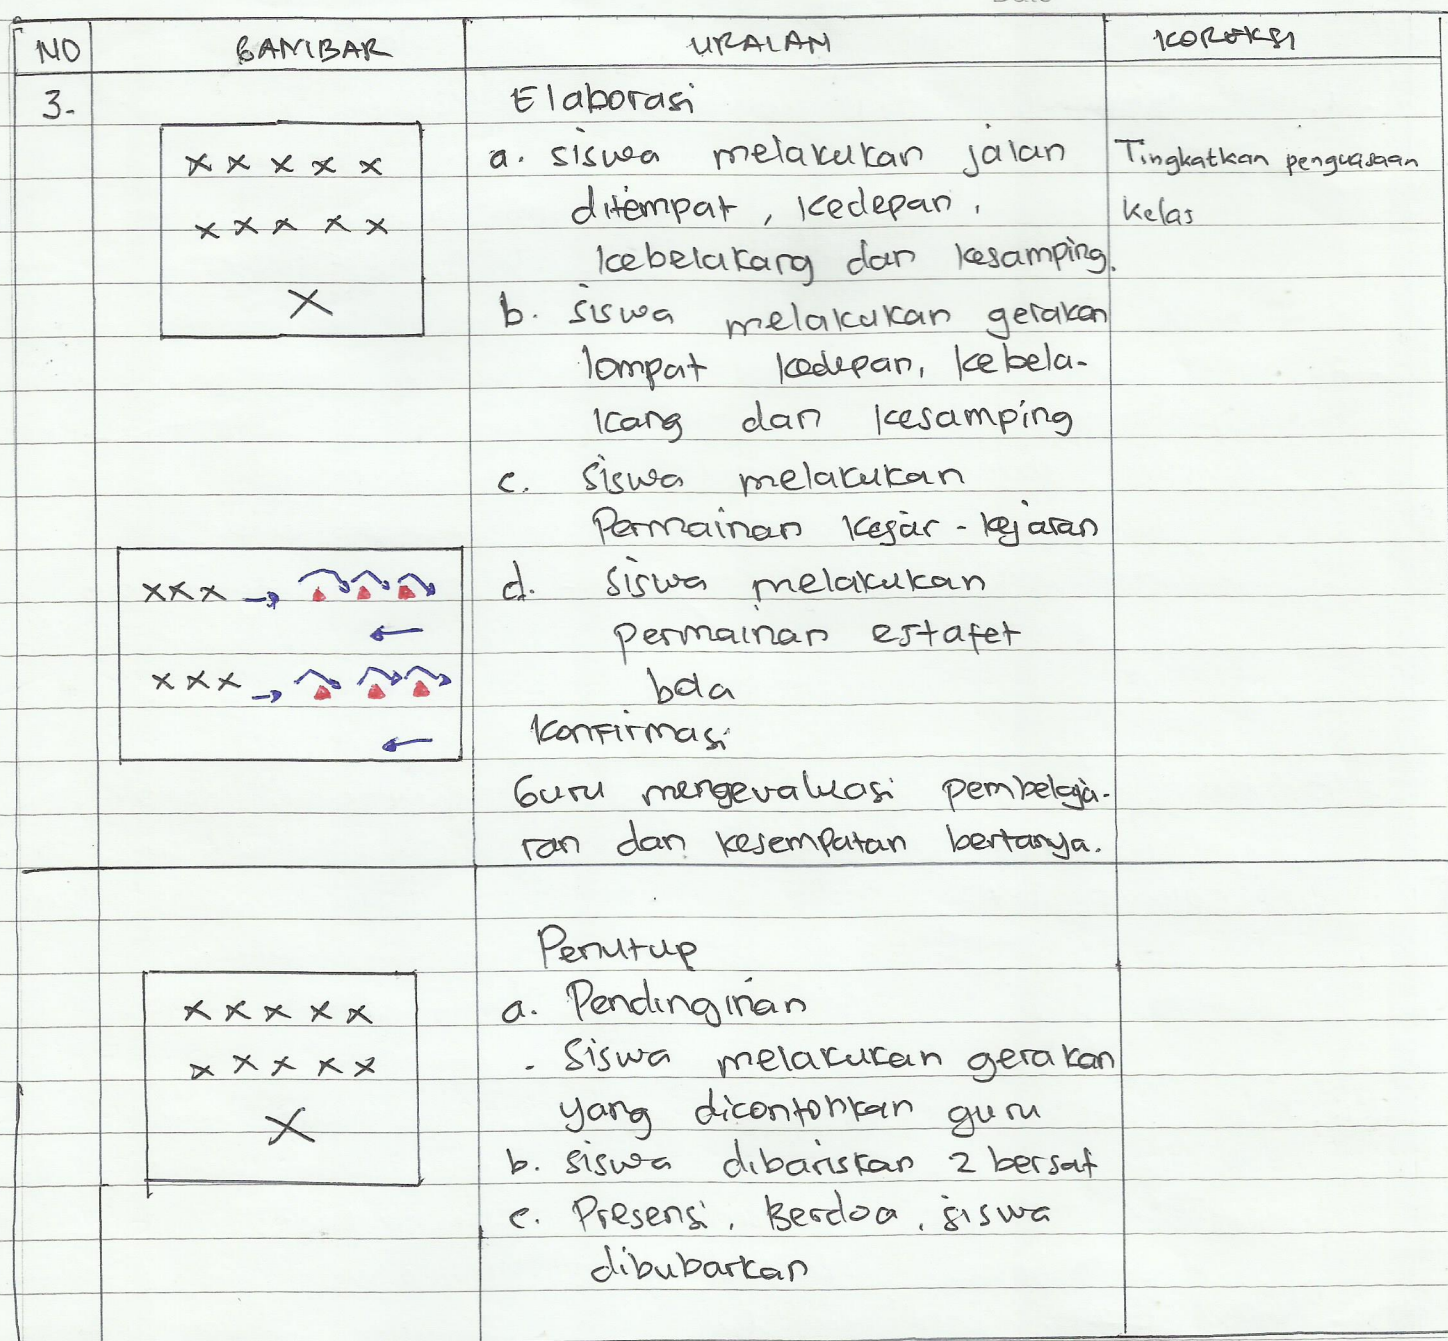 NO GAMBAR URAIAN KOREKSI
3. Elaborasi
a. siswa melakukan jalan Tingkatkan penguasaan
ditempat, kedepan, kelas
kebelakang dan kesamping.
b. siswa melakukan gerakan
lompat kedepan, kebela-
kang dan kesamping
c. siswa melakukan
Permainan kejar-kejaran
d. siswa melakukan
permainan estafet
bola
Konfirmasi
Guru mengevaluasi pembelaja-
ran dan kesempatan bertanya.
Penutup
a. Pendinginan
- Siswa melakukan gerakan
yang dicontohkan guru
b. siswa dibariskan 2 bersaf
c. Presensi, Berdoa, siswa
dibubarkan